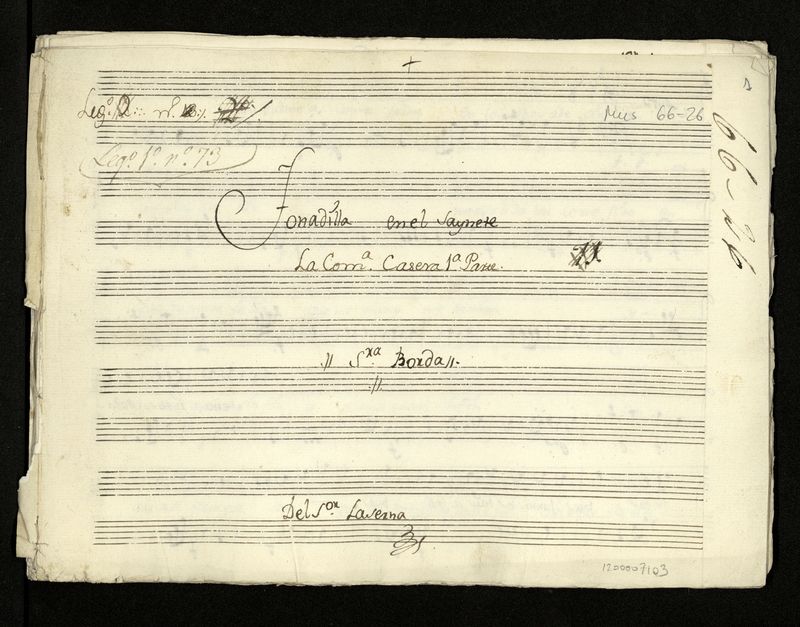 +
Leg.º 2.. nº.
Mus 66-26
Legº. 1º. nº. 73
66-26
Tonadilla en el Saynete
La Comª. Casera 1ª Parte.
// Sra Borda //.
//
Del Sor. Laserna
1200007103